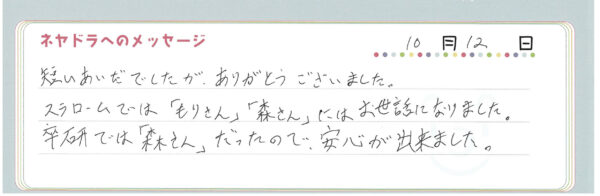 ネヤドラへのメッセージ
10月12日
短いあいだでしたが、ありがとうございました。
スラロームでは「もりさん」「森さん」にはお世話になりました。
卒研では「森さん」だったので、安心が出来ました。